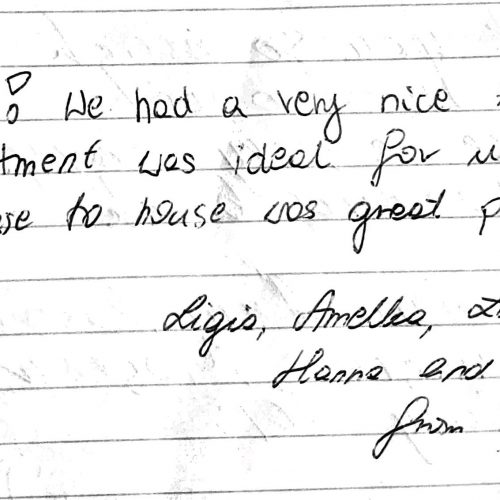 ! We had a very nice
tment was ideal for u
se to house was great p
Ligia, Amelka, Z
Hanna and
from